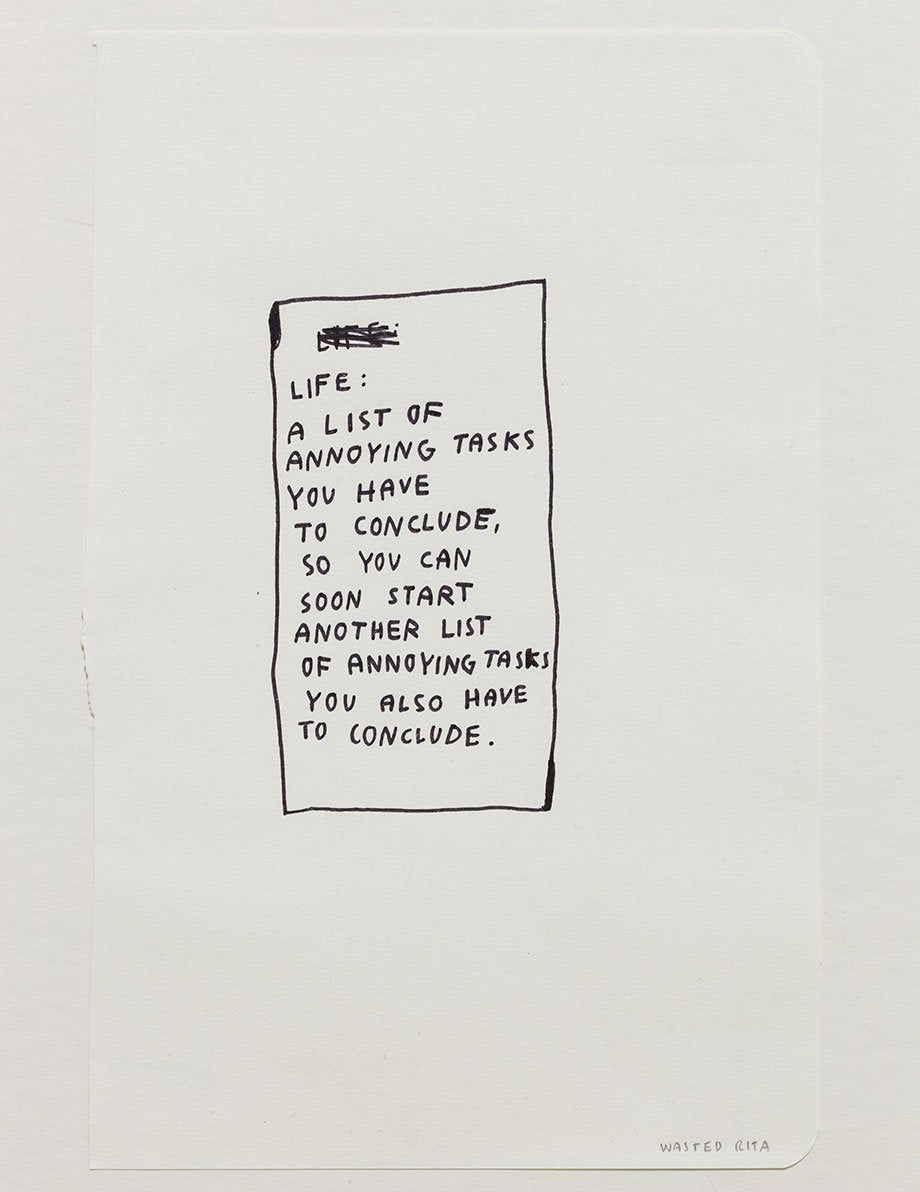 LIFE:
A LIST OF
ANNOYING TASKS
YOU HAVE
TO CONCLUDE,
SO YOU CAN
SOON START
ANOTHER LIST
OF ANNOYING TASKS
YOU ALSO HAVE
TO CONCLUDE.
WASTED RITA